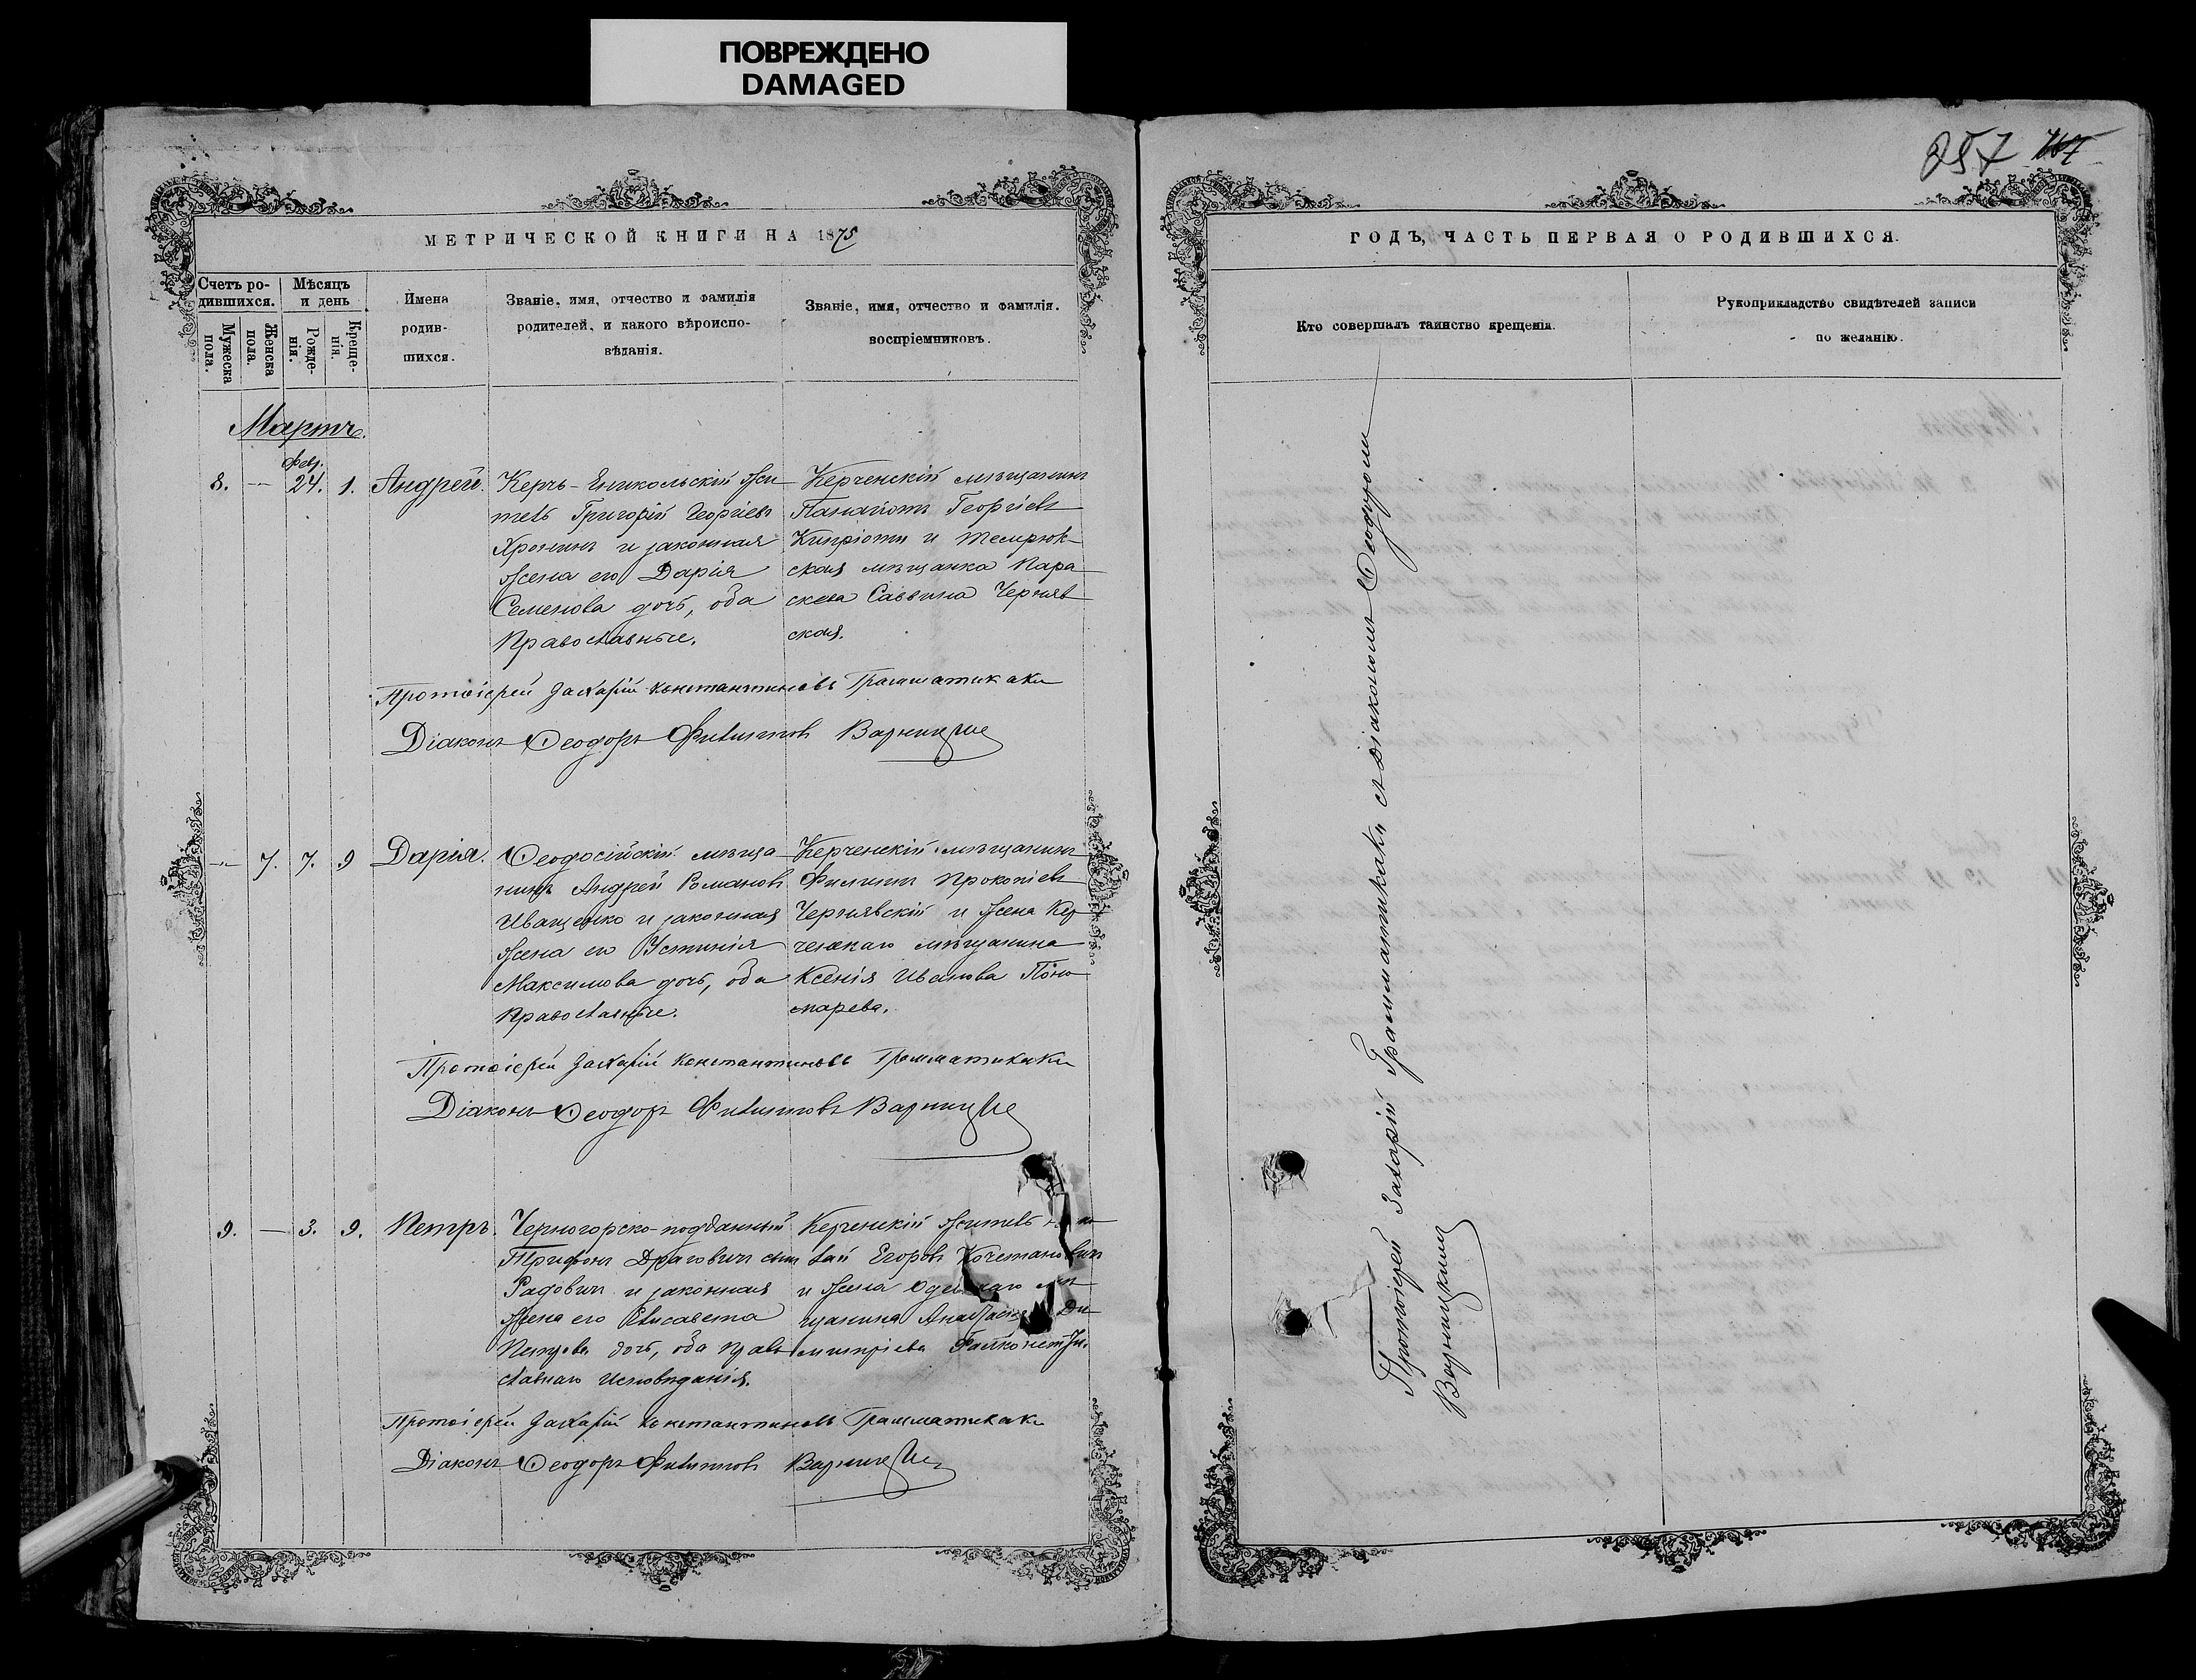 ПОВРЕЖДЕНО
DAMAGED
257
МЕТРИЧЕСКОЙ КНИГИ НА 1875
Счетъ ро-
дившихся.
Мѣсяцъ
и день
Мужеска
пола.
Женска
пола.
Рожде-
нія.
Креще-
нія.
Имена
родив-
шихся.
Званіе, имя, отчество и фамилія
родителей, и какого вѣроиспо-
вѣданія.
Званіе, имя, отчество и фамилія.
воспріемниковъ.
Мартъ.
Фев.
8. — 24. 1. Андрей.
Керчь-Еникольскій жи
тель Григорій Георгіевъ
и законная
жена его Дарія
Семенова дочь, оба
Православные.
Керченскій мѣщанинъ
Панаіотъ Георгіевъ
Кипріоти и Темрюк-
ская мѣщанка Пара
скева Саввина Черняв
ская.
Протоіерей Захарій Константиновъ Грамматикаки
Діаконъ Ѳеодоръ Филипповъ
— 7. 7. 9 Дарія.
Ѳеодосійскій мѣща
нинъ Андрей Романовъ
Иващенко и законная
жена его Устинія
Максимова дочь, оба
Православные.
Керченскій мѣщанинъ
Филиппъ Прокопіевъ
Чернявскій и жена Кер
ченскаго мѣщанина
Ксенія Иванова Поно
марева.
Протоіерей Захарій Константиновъ Грамматикаки
Діаконъ Ѳеодоръ Филипповъ
9. — 3. 9. Петръ.
Черногорско-подданный
Трифонъ Драговичъ сынъ
Радовичъ и законная
жена его Елисавета
Петрова дочь, оба прав
славнаго исповѣданія.
Керченскій житель
лай Егоровъ
и жена мѣ
щанина Ди
митріева
Протоіерей Захарій Константиновъ Грамматикаки
Діаконъ Ѳеодоръ Филипповъ
ГОДЪ, ЧАСТЬ ПЕРВАЯ О РОДИВШИХСЯ.
Кто совершалъ таинство крещенія.
Рукоприкладство свидѣтелей записи
по желанію.
Протоіерей Захарій Грамматикаки съ Діакономъ Ѳеодоромъ